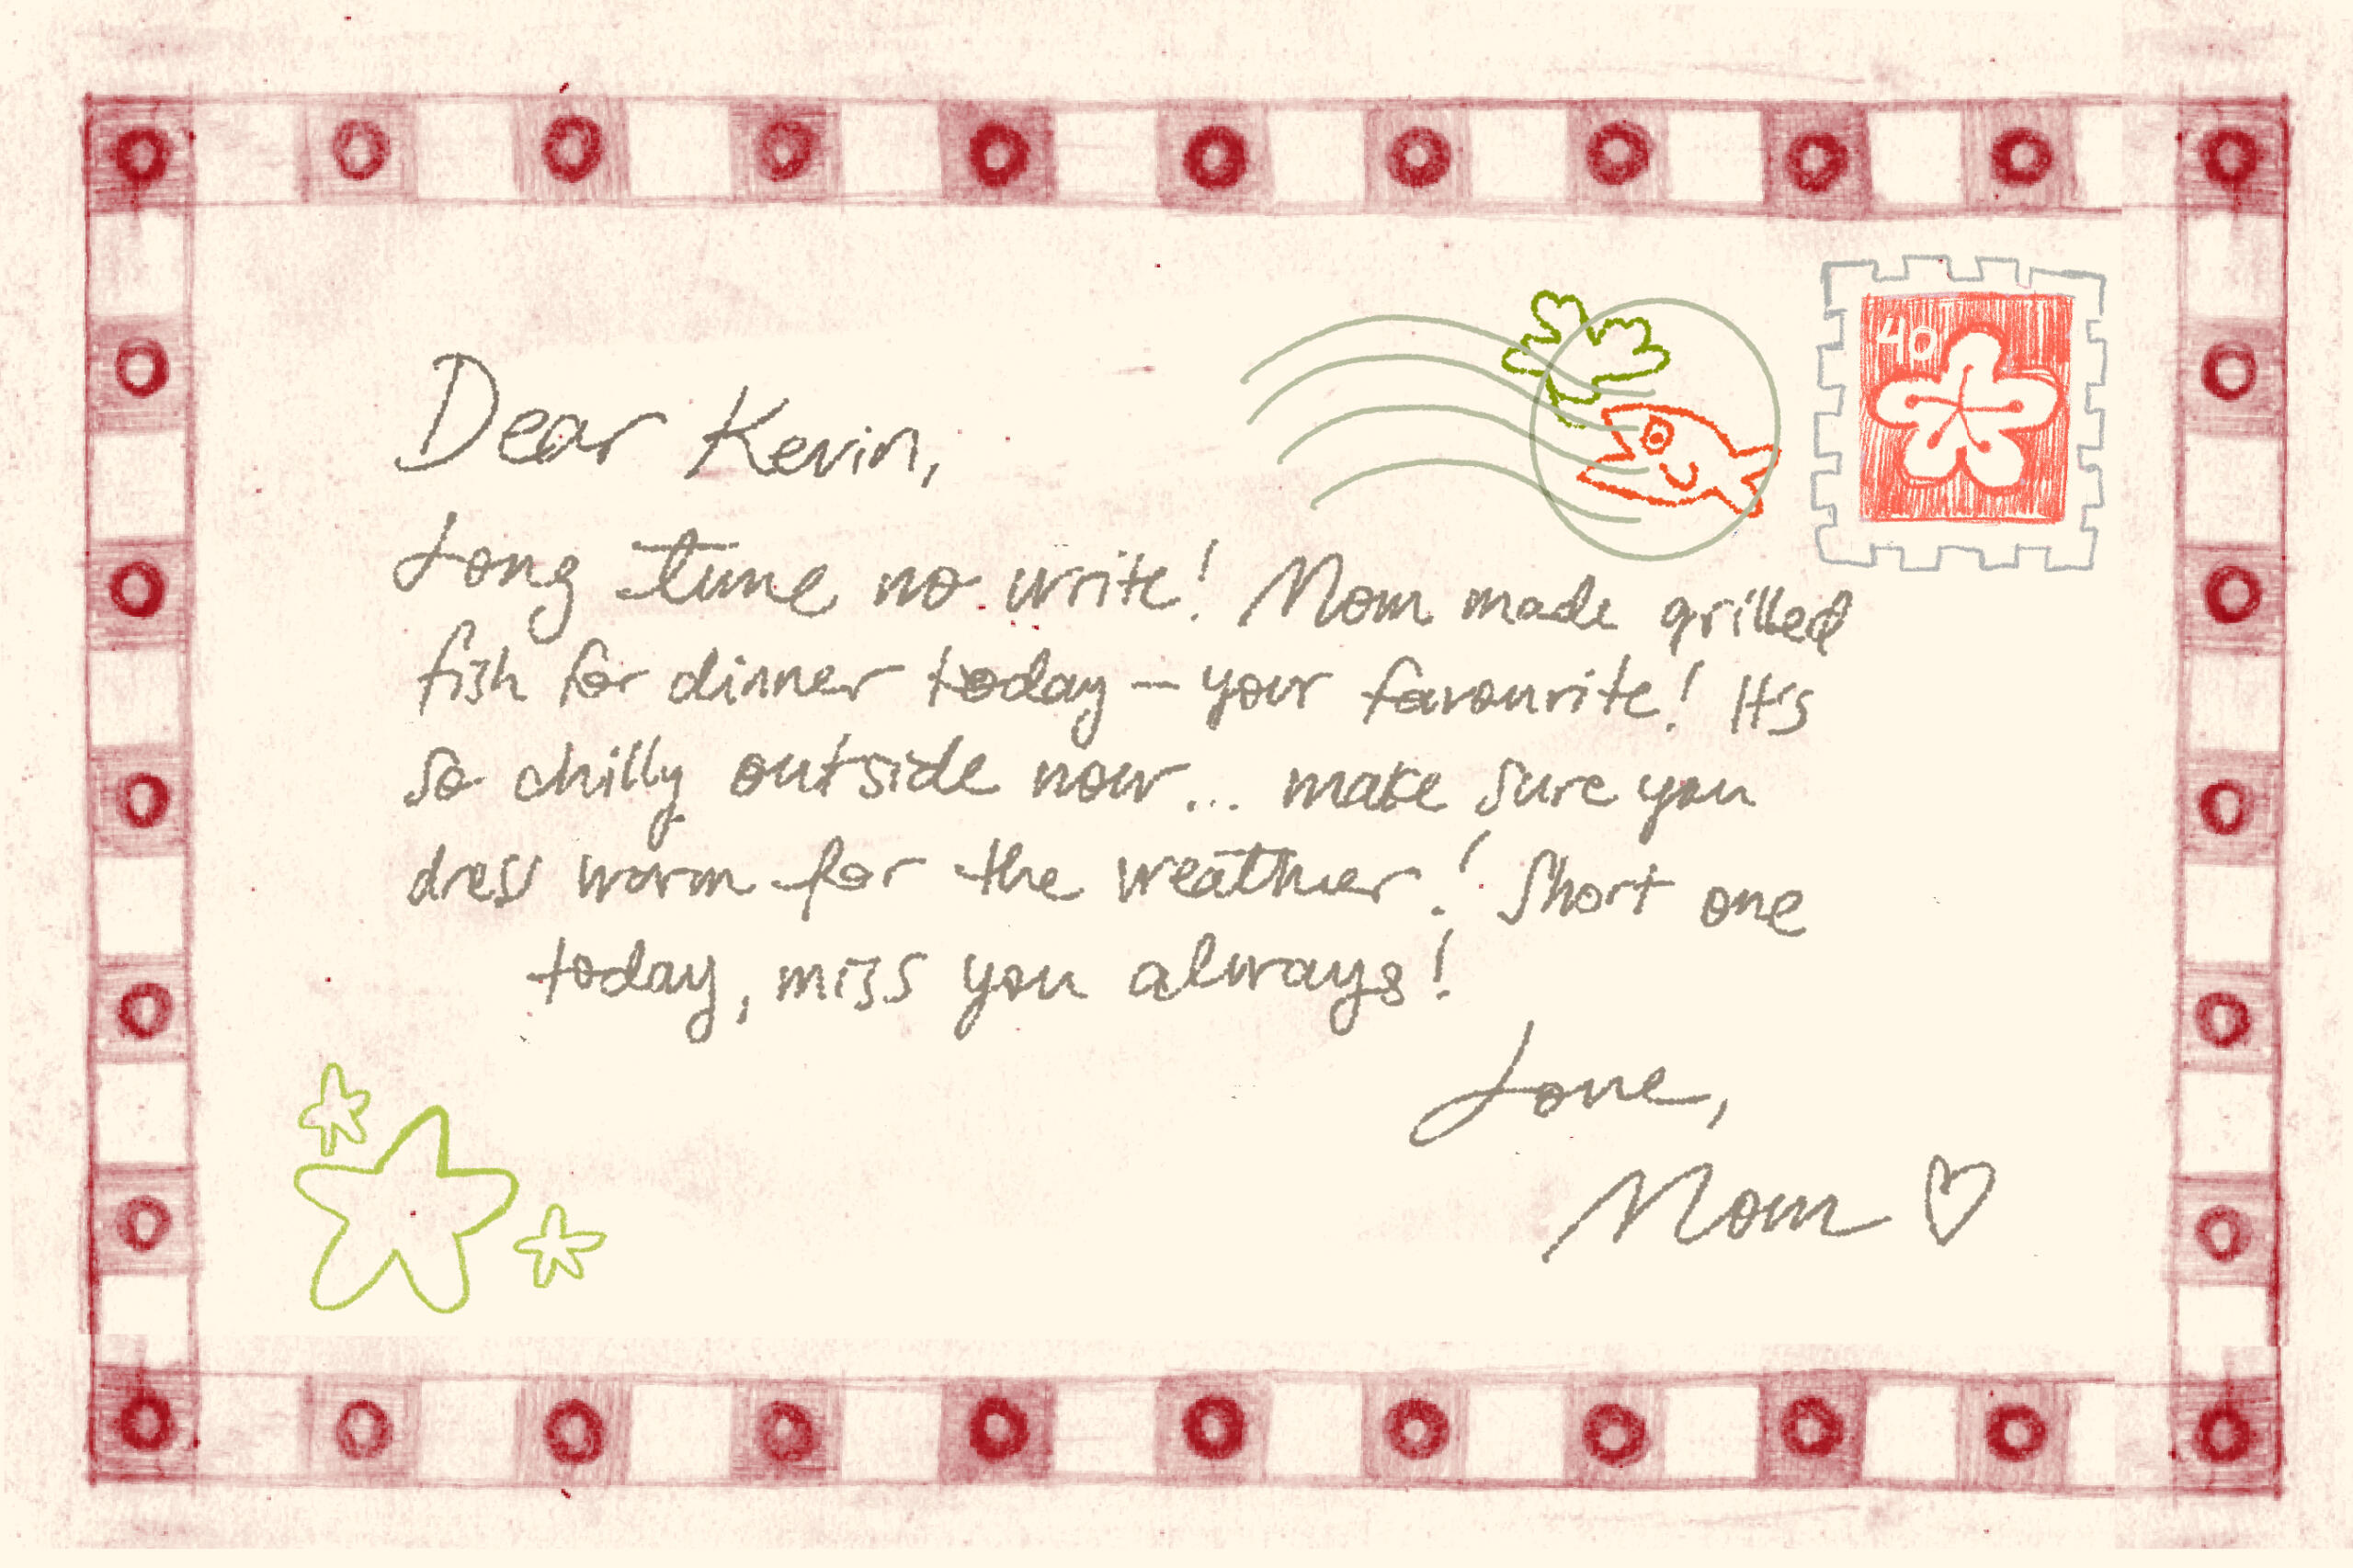 40
Dear Kevin,
Long time no write! Mom made grilled
fish for dinner today – your favourite! It's
so chilly outside now... make sure you
dress warm for the weather! Short one
today, miss you always!
Love,
Mom ♡